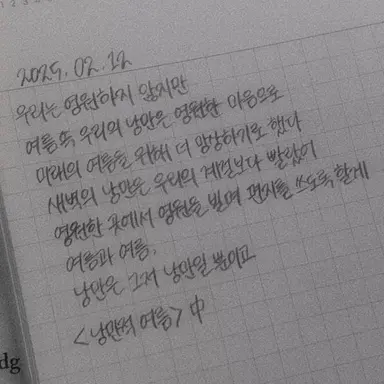 2025. 02. 12
우리는 영원하지 않지만
여름 속 우리의 낭만은 영원한 마음으로
미래의 여름을 위해 더 앙상하기로 했다
새벽의 낭만은 우리의 계절보다 빨랐어
영원한 곳에서 영원을 빌며 편지를 쓰도록 할게
여름과 여름,
낭만은 그저 낭만일 뿐이고
<낭만적 여름> 中
dg